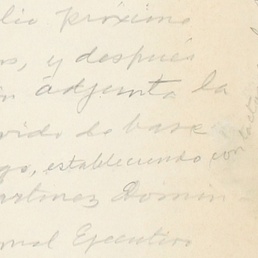 lio próximo
os, y después
ón adjunta la
vido de base
go, estableciendo con
artinez Domin-
onal Ejecutivo